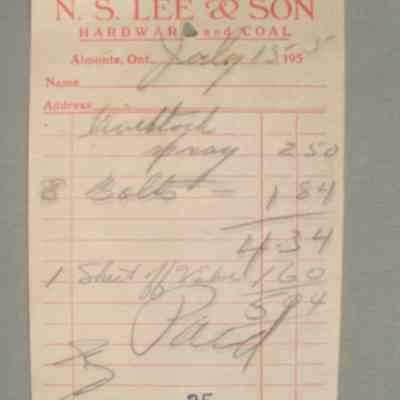 N. S. LEE & SON
HARDWARE and COAL
Almonte, Ont. July 15 1955
Name
Address
Livestock
spray 2 50
8 Bolts = 1 84
4.34
1 Shut off Valve 1 60
5 94
Paid
25